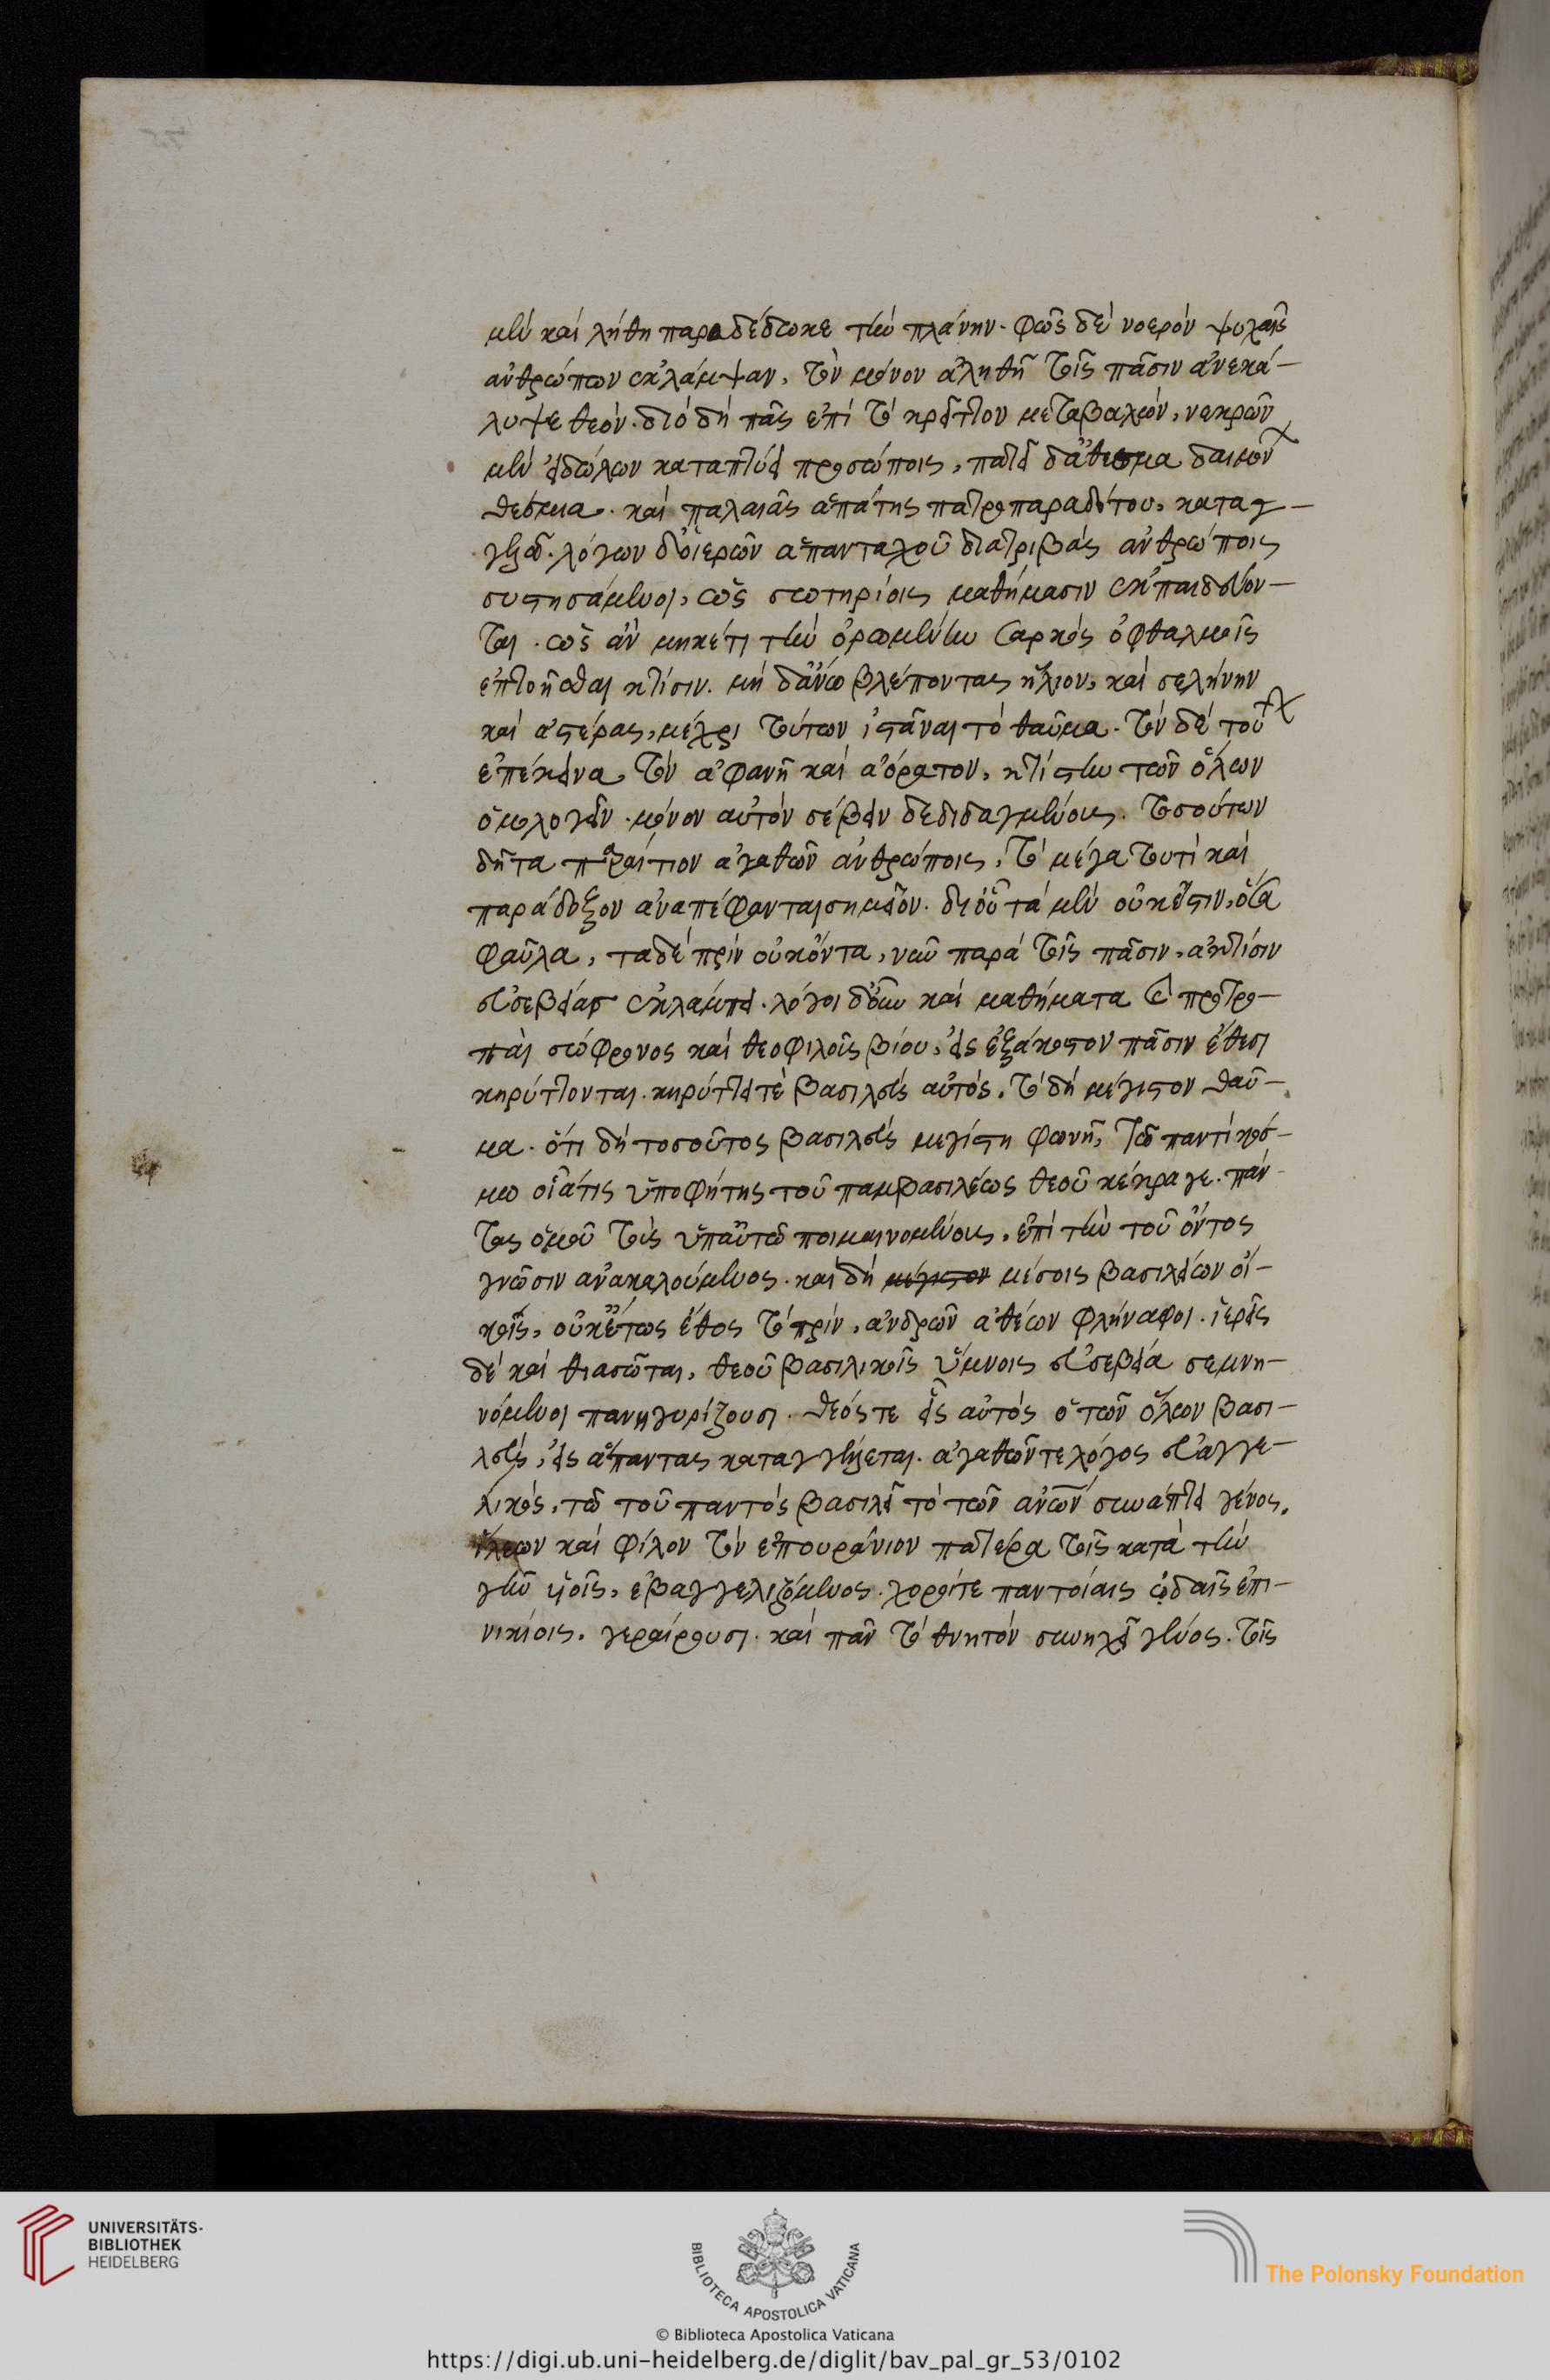 μὲν καὶ λήθη παραδέδωκε τὴν πλάνην. φῶς δὲ νοερὸν ψυχαῖς
ἀνθρώπων ἐκλάμψαν, τὸν μόνον ἀληθῆ τοῖς πᾶσιν ἀνεκά-
λυψε θεόν. διὸ δὴ πᾶς ἐπὶ τὸ κρεῖττον μεταβαλὼν, νεκρῶν
μὲν εἰδώλων καταπτύει προσώποις, πατεῖ δ' ἄθεσμα δαιμόνων
θέσμια. καὶ παλαιᾶς ἀπάτης πατροπαραδότου, καταγ-
γελᾷ. λόγων δ' ἱερῶν ἁπανταχοῦ διατριβὰς ἀνθρώποις
συστησάμενοι, ὡς σωτηρίοις μαθήμασιν ἐκπαιδεύον-
ται. ὡς ἂν μηκέτι τὴν ὁρωμένην σαρκὸς ὀφθαλμοῖς
ἐπτοῆσθαι κτίσιν. μὴ δ' ἄνω βλέποντας ἥλιον, καὶ σελήνην
καὶ ἀστέρας, μέχρι τούτων ἱστᾶναι τὸ θαῦμα. τὸν δὲ τούτων
ἐπέκεινα τὸν ἀφανῆ καὶ ἀόρατον, κτίστην τῶν ὅλων
ὁμολογεῖν. μόνον αὐτὸν σέβειν δεδιδαγμένοις. τοσούτων
δῆτα παραίτιον ἀγαθῶν ἀνθρώποις, τὸ μέγα τουτὶ καὶ
παράδοξον ἀναπέφανται σημεῖον. δι' οὗ τὰ μὲν οὐκ ἔστιν, ὅσα
φαῦλα, τὰ δὲ πρὶν οὐκ ὄντα, νῦν παρὰ τοῖς πᾶσιν, ἀκτῖσιν
εὐσεβείας ἐκλάμπει. λόγοι δ' οὖν καὶ μαθήματα καὶ προτρο-
παὶ σώφρονος καὶ θεοφιλοῦς βίου, εἰς ἐξάκουστον πᾶσιν ἔθεσι
κηρύττονται. κηρύττει τὲ βασιλεὺς αὐτός. τὸ δὴ μέγιστον θαῦ-
μα. ὅτι δὴ τοσοῦτος βασιλεὺς μεγίστη φωνῇ, τῷ παντὶ κόσ-
μω οἷά τις ὑποφήτης τοῦ παμβασιλέως θεοῦ κέκραγε. πάν-
τας ὁμοῦ τοὺς ὑπ' αὐτῷ ποιμαινομένους, ἐπὶ τὴν τοῦ ὄντος
γνῶσιν ἀνακαλούμενος. καὶ δὴ μέγιστον μέσοις βασιλείων οἴ-
κοις, οὐκέθ' ὡς ἔθος τὸ πρὶν, ἀνδρῶν ἀθέων φλήναφοι. ἱερεῖς
δὲ καὶ θιασῶται, θεοῦ βασιλικοῖς ὕμνοις εὐσεβείᾳ σεμνη-
νόμενοι πανηγυρίζουσι. θεός τε εἷς αὐτὸς ὁ τῶν ὅλων βασι-
λεὺς, εἰς ἅπαντας καταγγέλλεται. ἀγαθῶν τε λόγος εὐαγγε-
λικὸς, τῷ τοῦ παντὸς βασιλεῖ τὸ τῶν ἀνων συνάπτει γένος.
ἵλεων καὶ φίλον τὸν ἐπουράνιον πατέρα τοῖς κατὰ τὴν
γῆν υἱοῖς, εὐαγγελιζόμενος. χοροί τε παντοίαις ᾠδαῖς ἐπι-
νικίοις, γεραίρουσι. καὶ πᾶν τὸ θνητὸν συνηχεῖ γένος. τοῖς
UNIVERSITÄTS-
BIBLIOTHEK
HEIDELBERG
BIBLIOTECA APOSTOLICA VATICANA
The Polonsky Foundation
© Biblioteca Apostolica Vaticana
https://digi.ub.uni-heidelberg.de/diglit/bav_pal_gr_53/0102